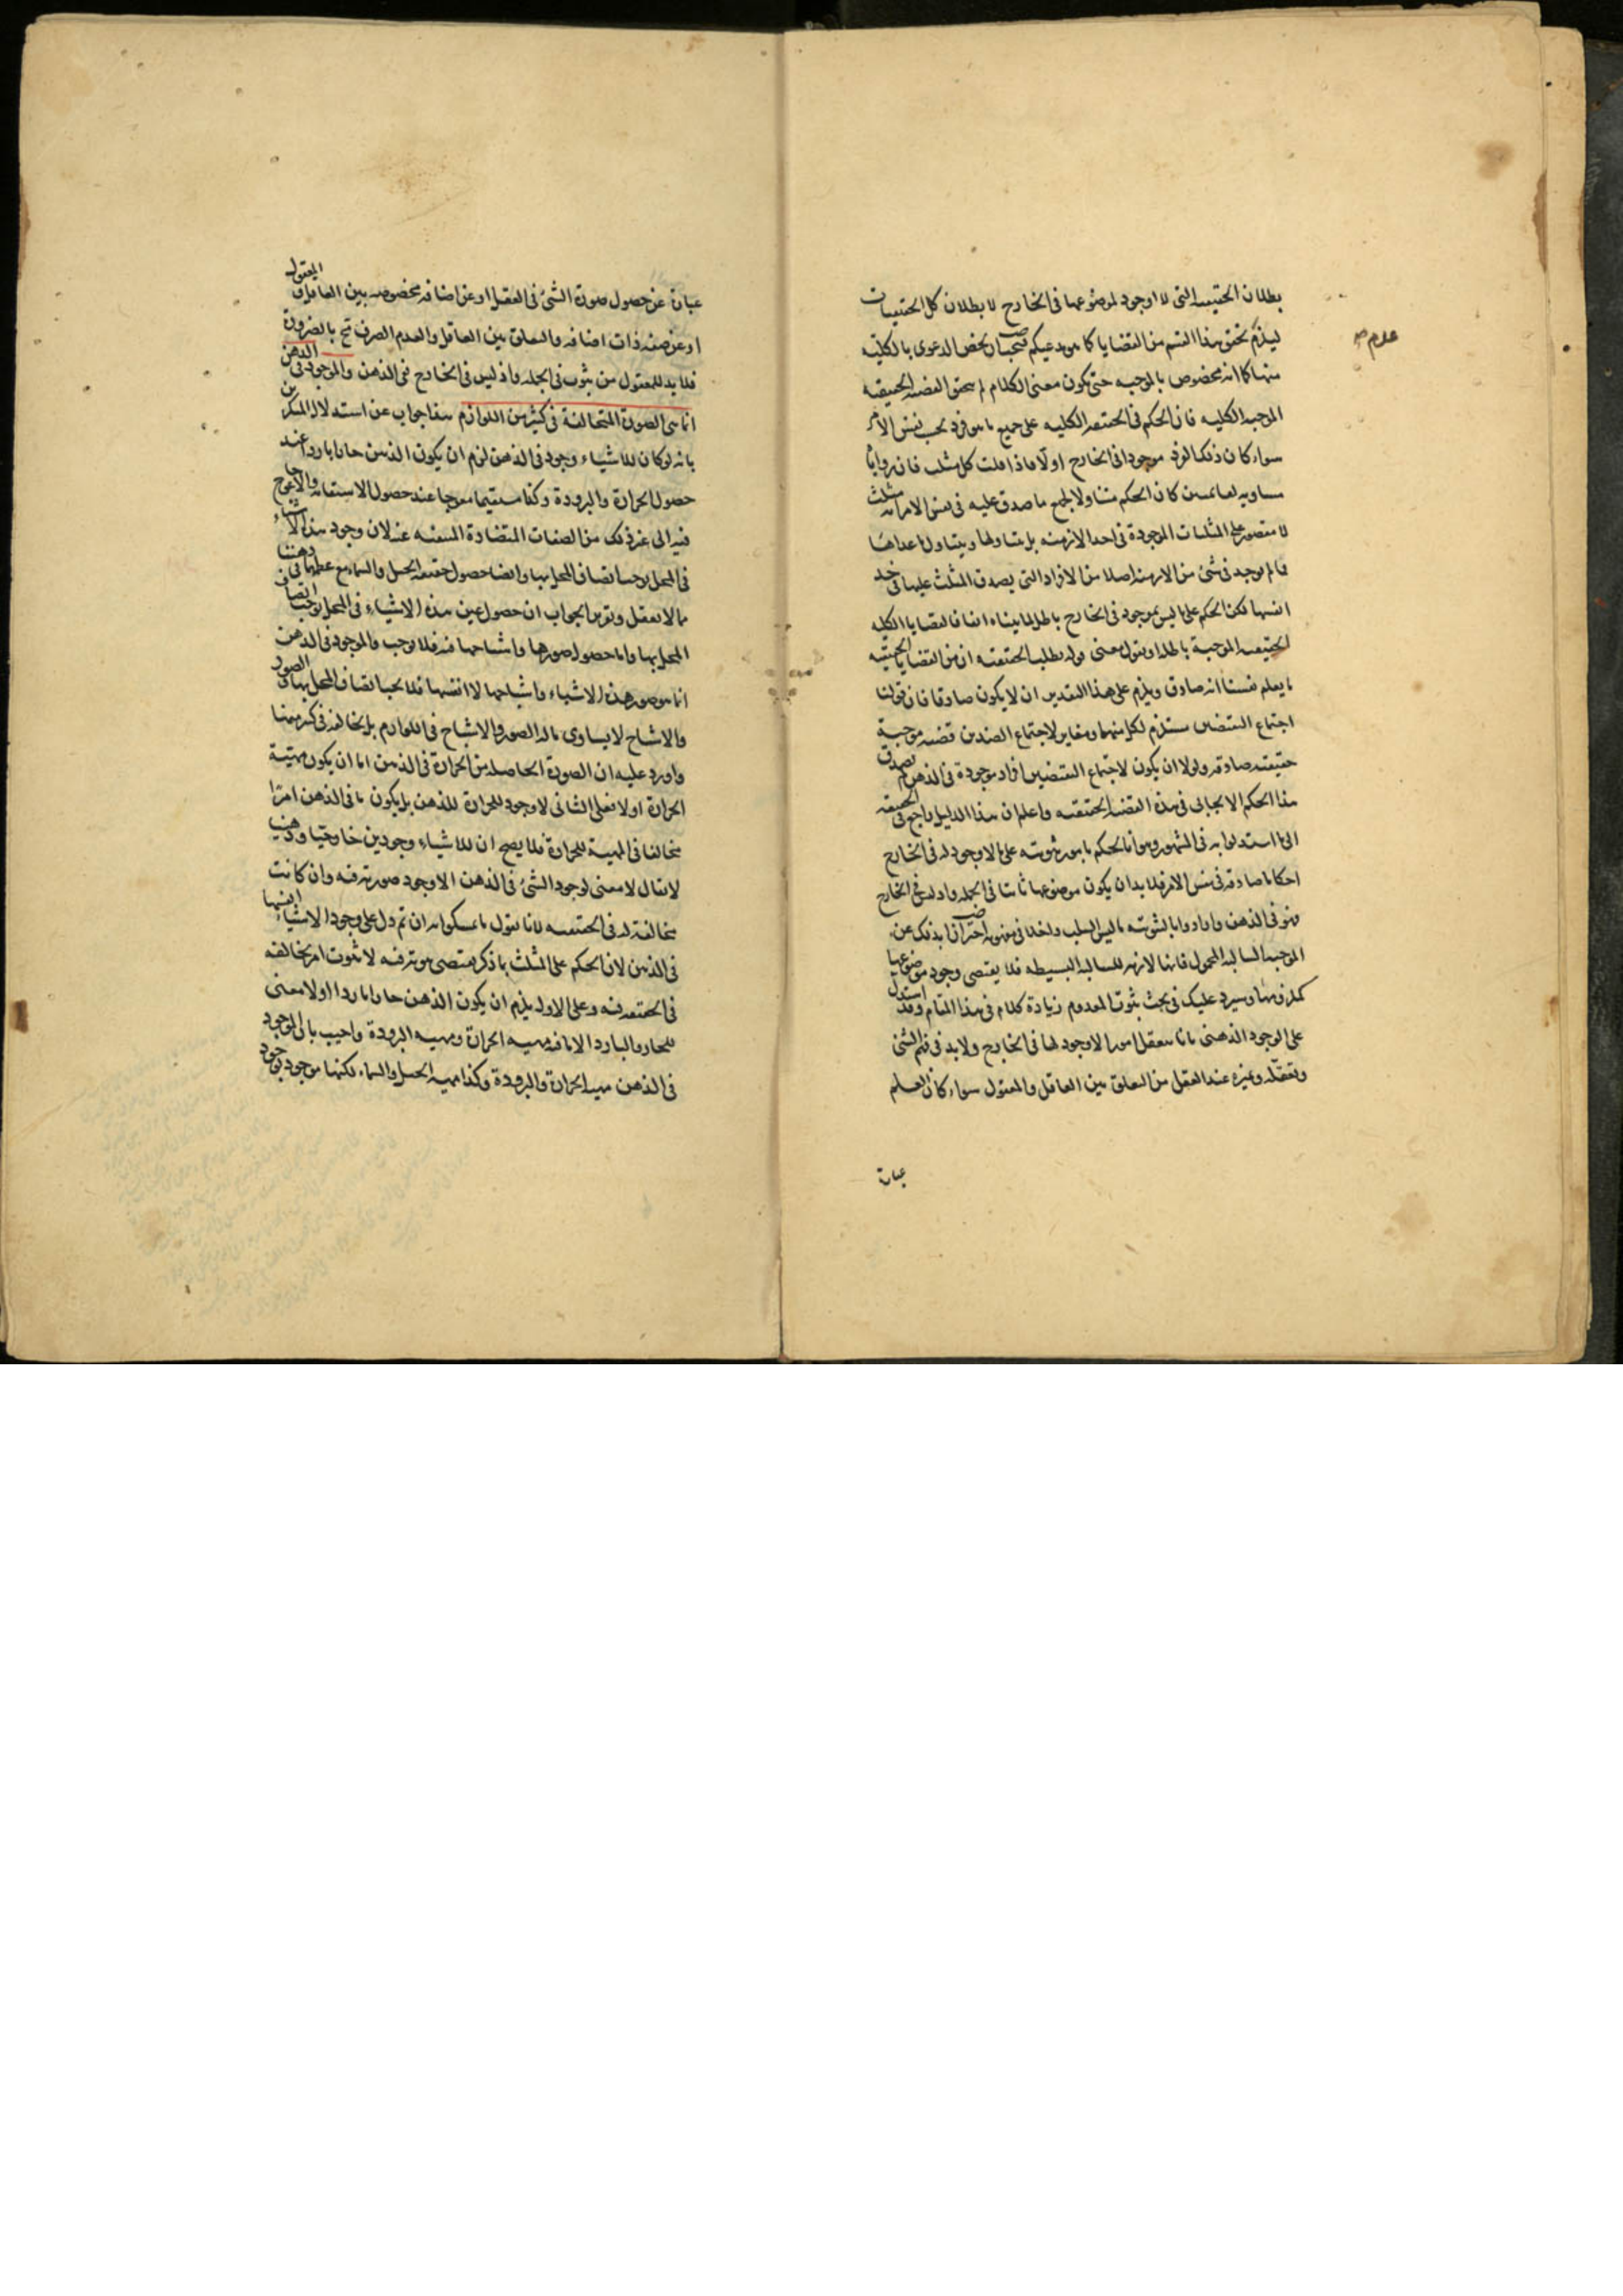 بطلان الحقيقية التى لا وجود لموضوعها فى الخارج لا بطلان كل الحقيقيات
ليلزم تحقق هذا القسم من القضايا كما هو مدعيكم فيجب ان يخص الدعوى بالكلية
عدم صح
منها كما انه مخصوص بالموجبه حتى يكون معنى الكلام لم يتحقق القضية الحقيقية
الموجبه الكليه فان الحكم فى الحقيقيه الكليه على جميع ما هو فرد بحسب نفس الامر
سواء كان ذلك الفرد موجودا فى الخارج اولا فاذا قلت كل مثلث فان زواياه
مساويه لقائمتين كان الحكم متناولا لجميع ما صدق عليه فى نفس الامر انه مثلث
لا مقصور على المثلثات الموجودة فى احد الازمنه بل يتناولها ويتناول ما عداها
مما لم يوجد فى شئ من الازمنه اصلا من الافراد التى يصدق المثلث عليها فى حد
انفسها لكن الحكم على ما ليس بموجود فى الخارج باطل لما بيناه انفا فالقضايا الكليه
الحقيقيه الموجبة باطله او نقول معنى قوله بطلت الحقيقية ان من القضايا الحقيقيه
ما يعلم نفسنا انه صادق ويلزم على هذا التقدير ان لا يكون صادقا فان قولنا
اجتماع النقيضين مستلزم لكل منهما ومغاير لاجتماع الضدين قضيه موجبة
حقيقيه صادقه ولولا ان يكون لاجتماع النقيضين افراد موجودة فى الذهن لم يصدق
هذا الحكم الايجابى فى هذه القضية الحقيقيه واعلم ان هذا الدليل راجع فى الحقيقه
الى ما استدلوا به فى المشهور وهو انا نحكم بامور ثبوتيه على ما لا وجود له فى الخارج
احكاما صادقه فى نفس الامر فلا بد ان يكون موضوعها ثابتا فى الجمله واذ ليس فى الخارج
فهو فى الذهن وارادوا بالثبوتيه ما ليس السلب داخلا فى مفهومه احترازا بذلك عن
الموجبه السالبه المحمول فانها لازمه للسالبه البسيطه فلا يقتضى وجود موضوعها
كملزومها وسيرد عليك فى بحث ثبوت المعدوم زيادة كلام فى هذا المقام وقد استدل
على الوجود الذهنى بانا نتعقل امورا لا وجود لها فى الخارج ولا بد فى فهم الشئ
وتعقله وتميزه عند العقل من التعلق بين العاقل والمعقول سواء كان العلم
عبارة
عبارة عن حصول صورة الشئ فى العقل او عن اضافه مخصوصه بين العاقل والمعقول
او عن صفه ذات اضافه والتعلق بين العاقل والعدم الصرف مح بالضرورة
فلا بد للمعقول من ثبوت فى الجمله واذ ليس فى الخارج ففى الذهن والموجود فى الذهن
انما هى الصورة المتخالفة فى كثير من اللوازم هذا جواب عن استدلال المنكرين
بانه لو كان للاشياء وجود فى الذهن لزم ان يكون الذهن حارا باردا عند
حصول الحرارة والبرودة وكذا مستقيما معوجا عند حصول الاستقامه والاعوجاج
فيه الى غير ذلك من الصفات المتضادة المنفيه عنه لان وجود هذه الاشياء
فى المحل يوجب اتصاف المحل بها وايضا حصول حقيقه الجبل والسماء مع عظمهما فى ذهننا
مما لا يعقل وتقرير الجواب ان حصول عين هذه الاشياء فى المحل يوجب اتصاف
المحل بها واما حصول صورها واشباحها فيه فلا يوجب والموجود فى الذهن
انما هو صور هذه الاشياء واشباحها لا انفسها فلا يجب اتصاف المحل بها والصور
والاشباح لا يساوى ما له الصور والاشباح فى اللوازم بل يخالفه فى كثير منها
واورد عليه ان الصورة الحاصله من الحرارة فى الذهن اما ان يكون مهية
الحرارة اولا فعلى الثانى لا وجود للحرارة للذهن بل يكون ما فى الذهن امرا
مخالفا فى المهية للحرارة فلا يصح ان للاشياء وجودين خارجيا وذهنيا
لا يقال لا معنى لوجود الشئ فى الذهن الا وجود صورته فيه وان كانت
مخالفة له فى الحقيقيه لانا نقول ما تمسكوا به ان تم دل على وجود الاشياء انفسها
فى الذهن لان الحكم على المثلث بما ذكر يقتضى ثبوته فيه لا ثبوت امر يخالفه
فى الحقيقه فيه وعلى الاول يلزم ان يكون الذهن حارا باردا اذ لا معنى
للحار والبارد الا ما فيه مهيه الحرارة ومهيه البرودة واجيب بان الموجود
فى الذهن مهيه الحرارة والبرودة وكذا مهيه الجبل والسماء لكنها موجود بوجود